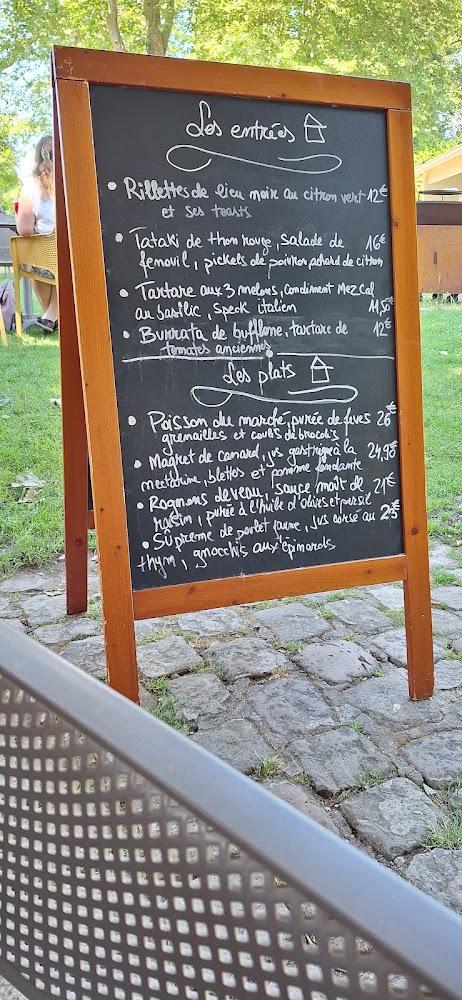 Les entrées
• Rillettes de lieu noir au citron vert 12€
et ses toasts
• Tataki de thon rouge, salade de 16€
fenouil, pickels de poivron, achard de citron
• Tartare aux 3 melons, condiment Mezcal
au basilic, speck italien 11,50€
• Burrata de bufflone, tartare de 12€
tomates anciennes
Les plats
• Poisson du marché, purée de fèves 26€
grenailles et cœurs de brocolis
• Magret de canard, jus gastrique à la 24,90€
nectarine, blettes et pomme fondante
• Rognons de veau, sauce moût de 21€
raisin, purée à l'huile d'olives et persil
• Suprême de poulet jaune, jus corsé au 23€
thym, gnocchis aux épinards